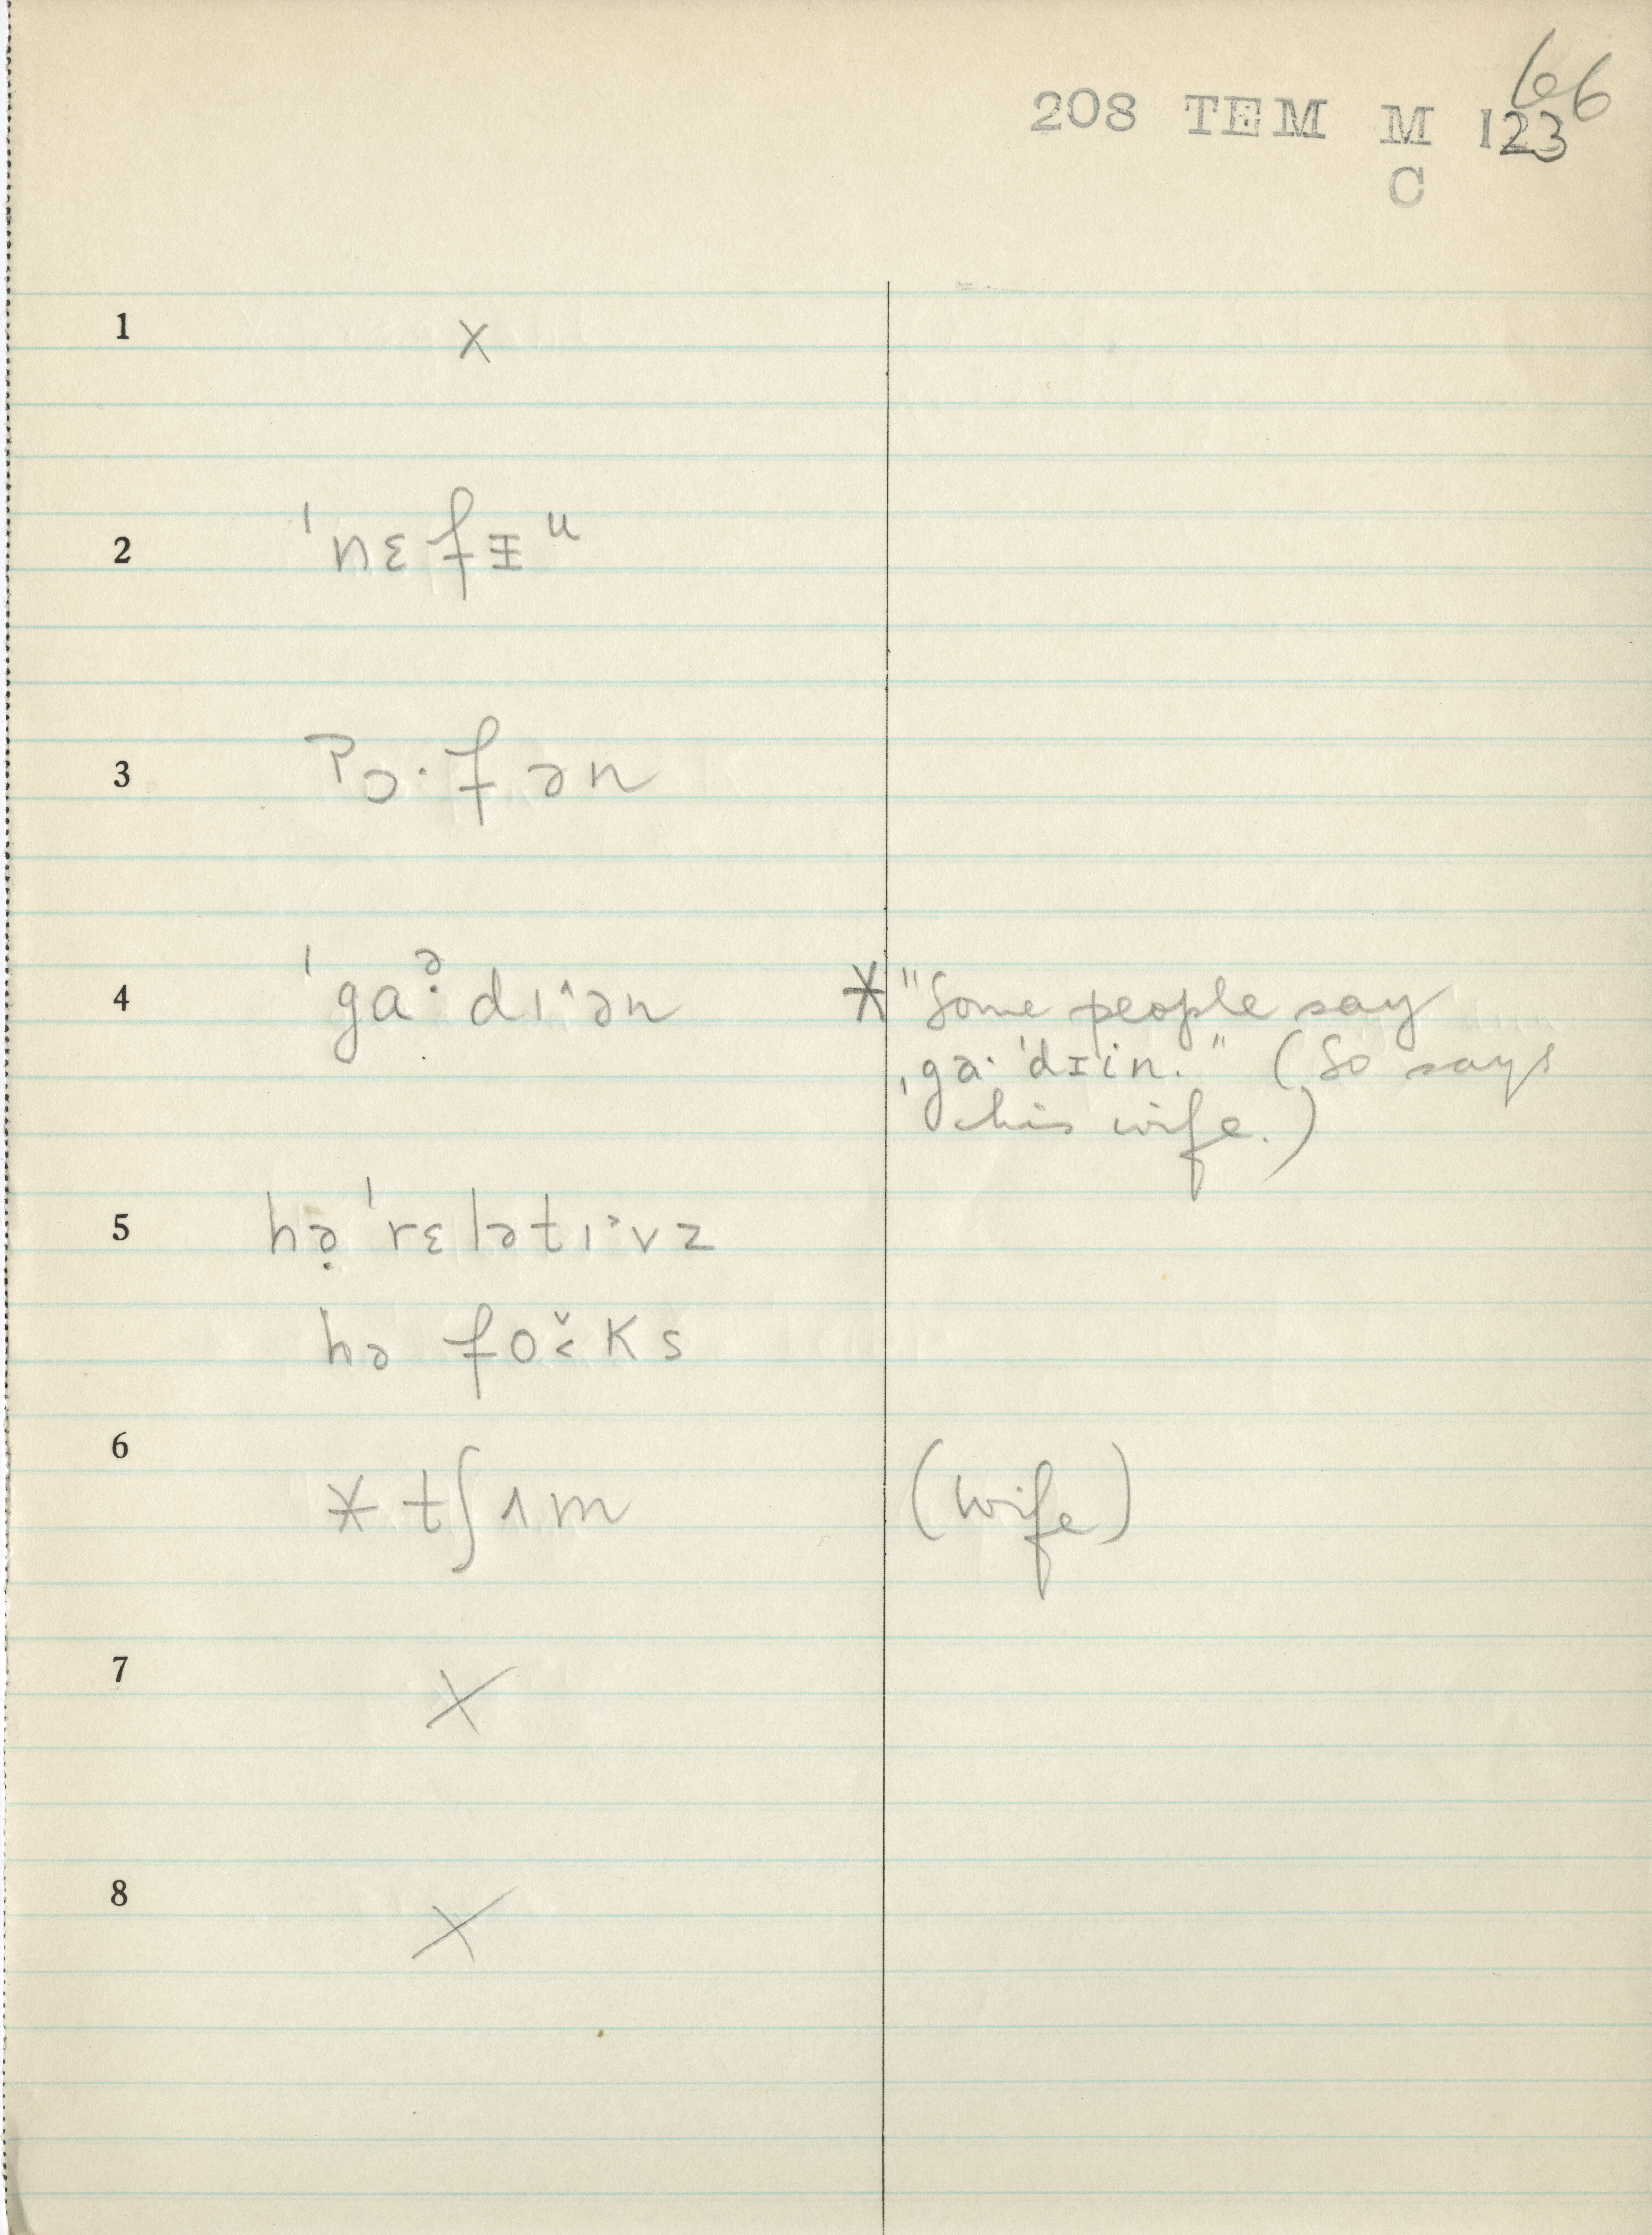 66
208 TEM M 123
C
1 X
2 ˈnɛfᵻᵘ
3 ʔɔ·fən
4 ˈgaᵊ·dɪ˄ən * "Some people say
ˌgɑ·ˈdɪin." (So says
his wife.)
5 hə̣ ˈrɛlətɪ˃vz
hə fo˅˂ks
6 * tʃʌm (wife)
7 X
8 X